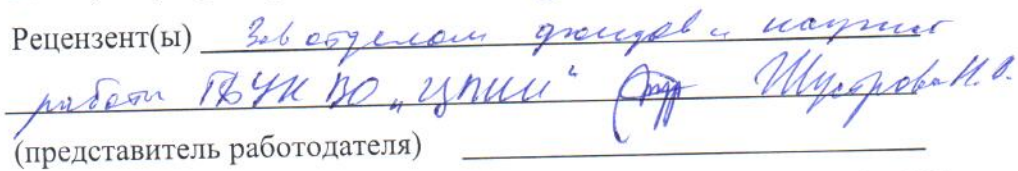 Рецензент(ы) Зав отделом фондов и научной
работы ГБУК ВО "ЦПКИ" Шустрова Н.О.
(представитель работодателя)